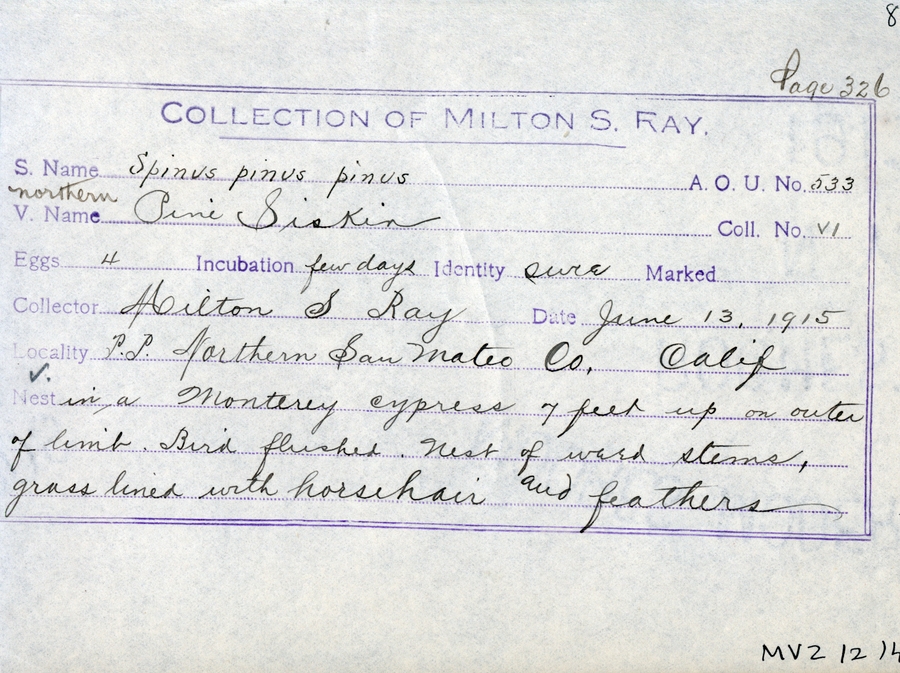 8
Page 326
COLLECTION OF MILTON S. RAY.
S. Name Spinus pinus pinus A. O. U. No. 533
northern
V. Name Pine Siskin Coll. No. VI
Eggs 4 Incubation few days Identity sure Marked
Collector Milton S Ray Date June 13, 1915
Locality P.P. Northern San Mateo Co. Calif
Nest in a Monterey cypress 7 feet up on outer
of limb. Bird flushed. Nest of weed stems,
grass lined with horsehair and feathers
MVZ 12 14